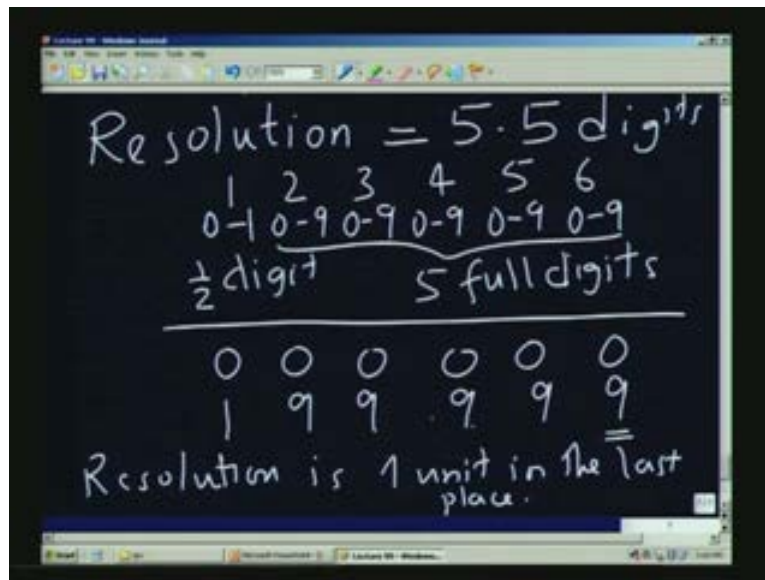 Resolution = 5.5 digits
1 2 3 4 5 6
0-1 0-9 0-9 0-9 0-9 0-9
1/2 digit 5 full digits
0 0 0 0 0 0
1 9 9 9 9 9
Resolution is 1 unit in the last
place.